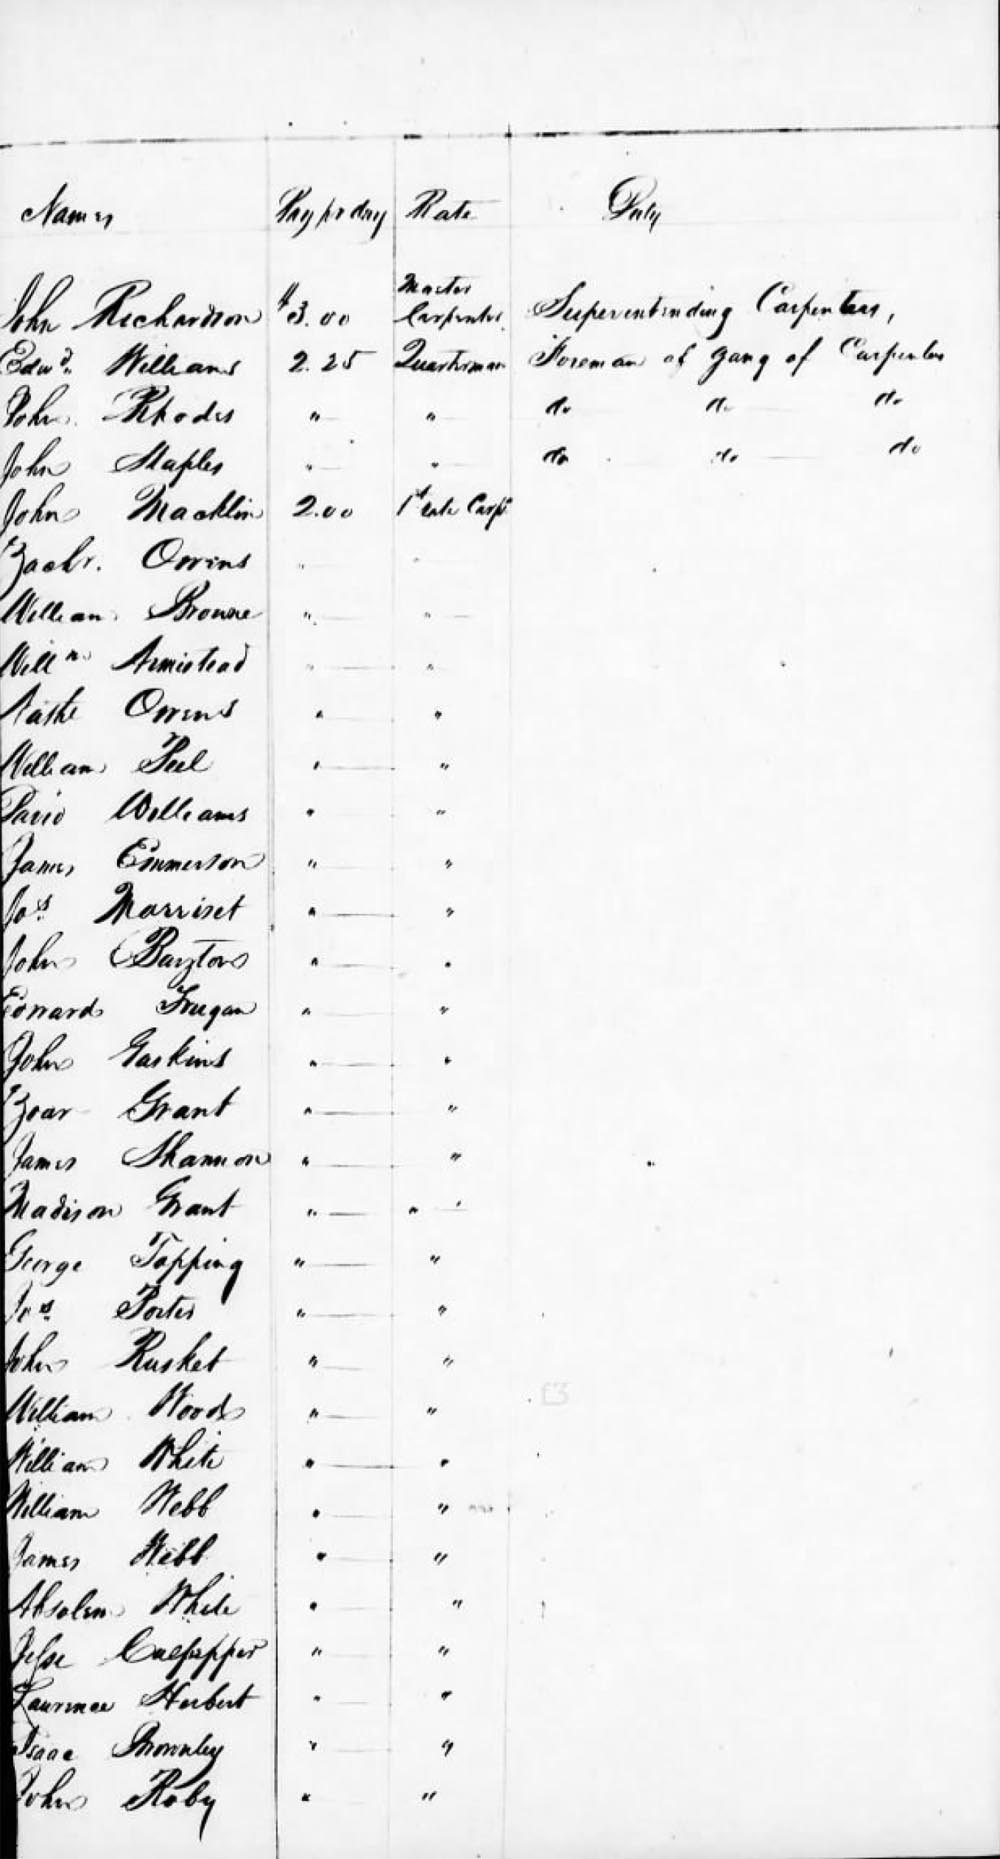 Names Pay pr day Rate Duty
John Richardson $3.00 Master Carpenter Superintending Carpenters,
Edwd. Williams 2.25 Quarterman Foreman of gang of Carpenters
John Rhodes " " do do do
John Staples " " do do do
John Macklin 2.00 1st rate Carpt
Zachr. Owens " "
William Browne " "
Willm Armistead " "
Owens " "
William Peel " "
David Williams " "
James Emmerson " "
Jas. Morriset " "
John " "
Edward " "
John Gaskins " "
Zoar Grant " "
James Shannon " "
Madison Grant " "
George Topping " "
Jos. Porter " "
John Rusket " "
William Woods " "
William White " "
William Webb " "
James Webb " "
Absolem White " "
Jesse Culpepper " "
Laurence Herbert " "
Isaac Brownley " "
John Roby " "